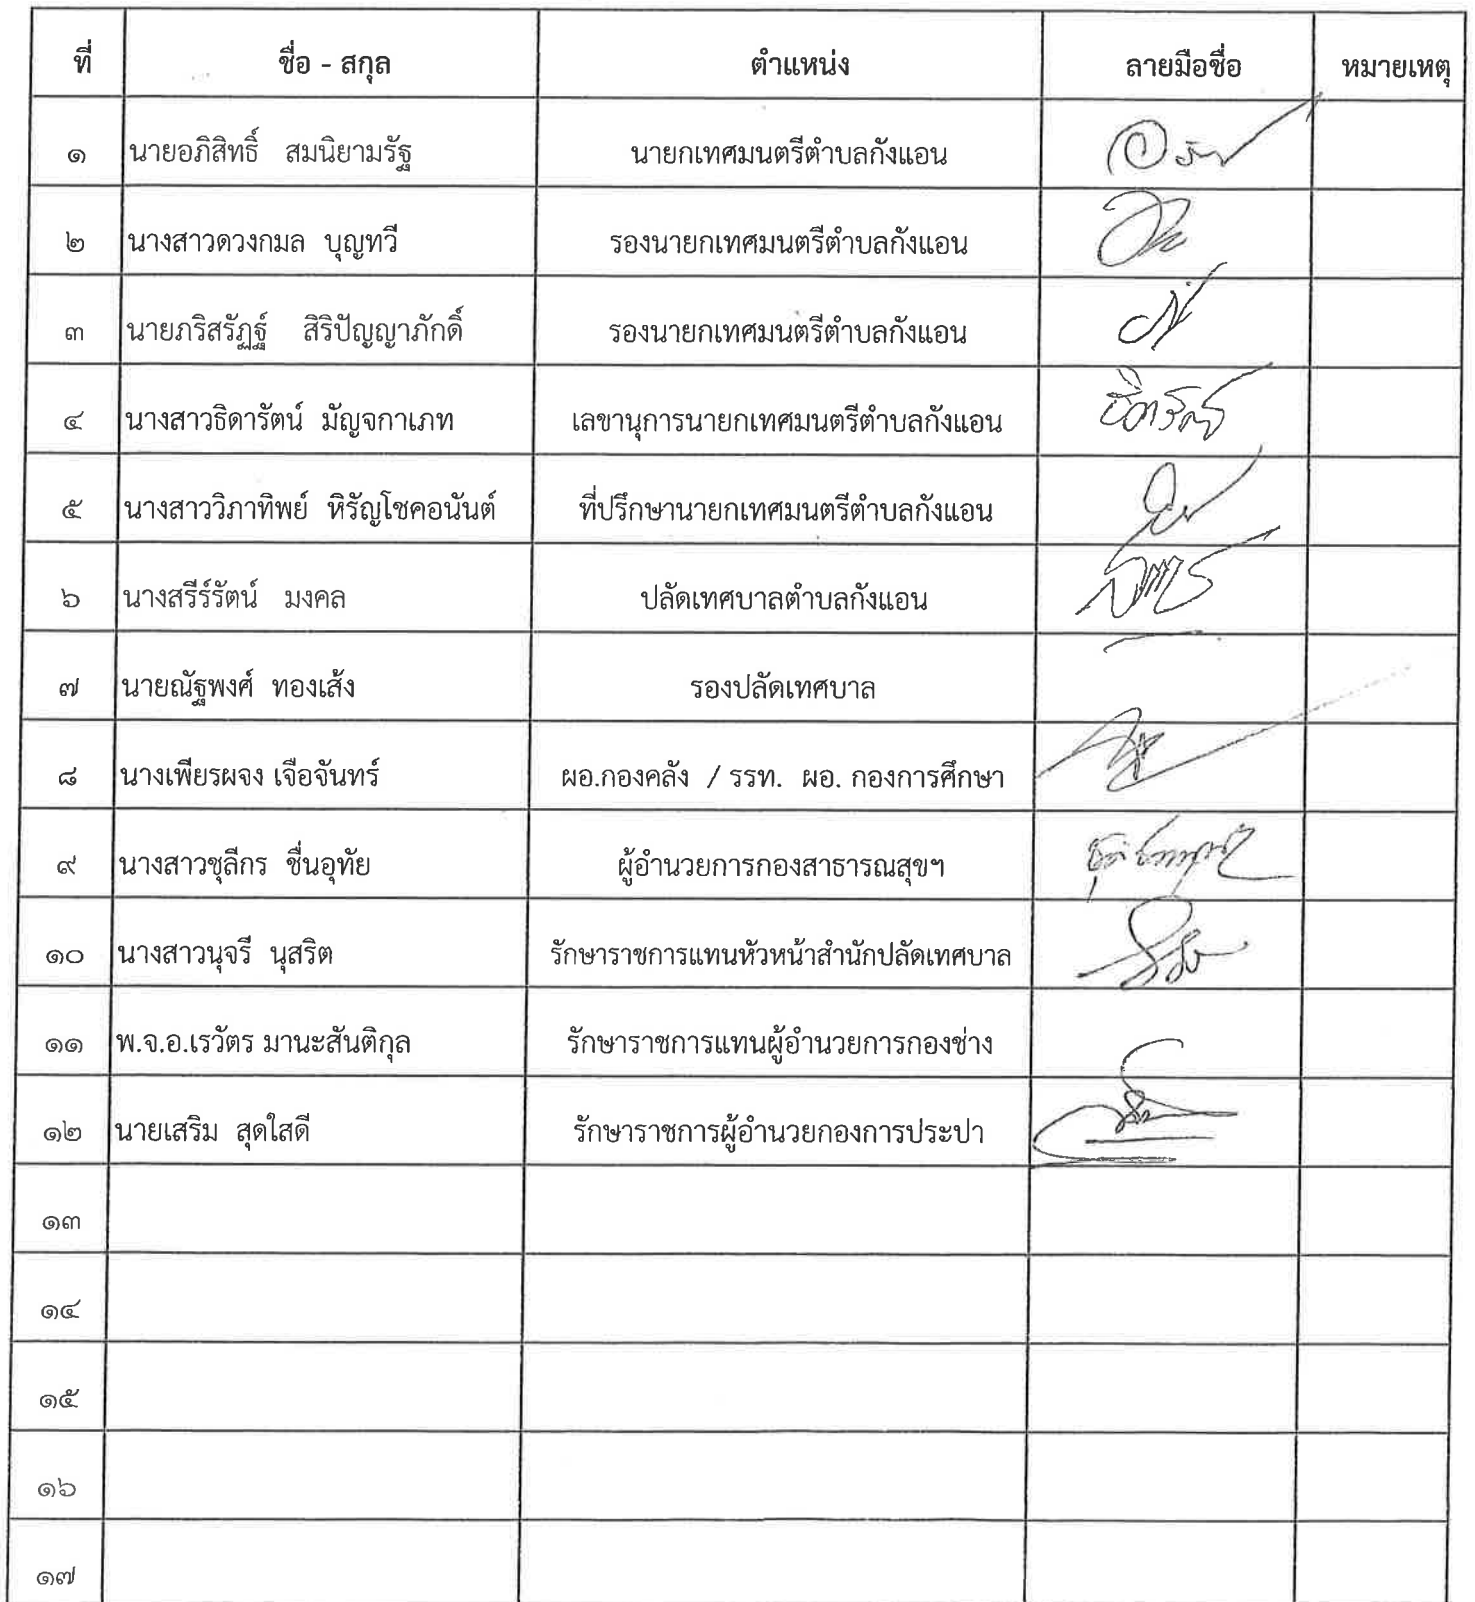 ที่ ชื่อ - สกุล ตำแหน่ง ลายมือชื่อ หมายเหตุ
๑ นายอภิสิทธิ์ สมนิยามรัฐ นายกเทศมนตรีตำบลกังแอน
๒ นางสาวดวงกมล บุญทวี รองนายกเทศมนตรีตำบลกังแอน
๓ นายภริสรัฏฐ์ สิริปัญญาภักดิ์ รองนายกเทศมนตรีตำบลกังแอน
๔ นางสาวธิดารัตน์ มัญจกาเภท เลขานุการนายกเทศมนตรีตำบลกังแอน ธิดารัตน์
๕ นางสาววิภาทิพย์ หิรัญโชคอนันต์ ที่ปรึกษานายกเทศมนตรีตำบลกังแอน
๖ นางสรีร์รัตน์ มงคล ปลัดเทศบาลตำบลกังแอน
๗ นายณัฐพงศ์ ทองเส้ง รองปลัดเทศบาล
๘ นางเพียรผจง เจือจันทร์ ผอ.กองคลัง / รรท. ผอ. กองการศึกษา
๙ นางสาวชุลีกร ชื่นอุทัย ผู้อำนวยการกองสาธารณสุขฯ
๑๐ นางสาวนุจรี นุสริต รักษาราชการแทนหัวหน้าสำนักปลัดเทศบาล
๑๑ พ.จ.อ.เรวัตร มานะสันติกุล รักษาราชการแทนผู้อำนวยการกองช่าง
๑๒ นายเสริม สุดใสดี รักษาราชการผู้อำนวยกองการประปา
๑๓
๑๔
๑๕
๑๖
๑๗